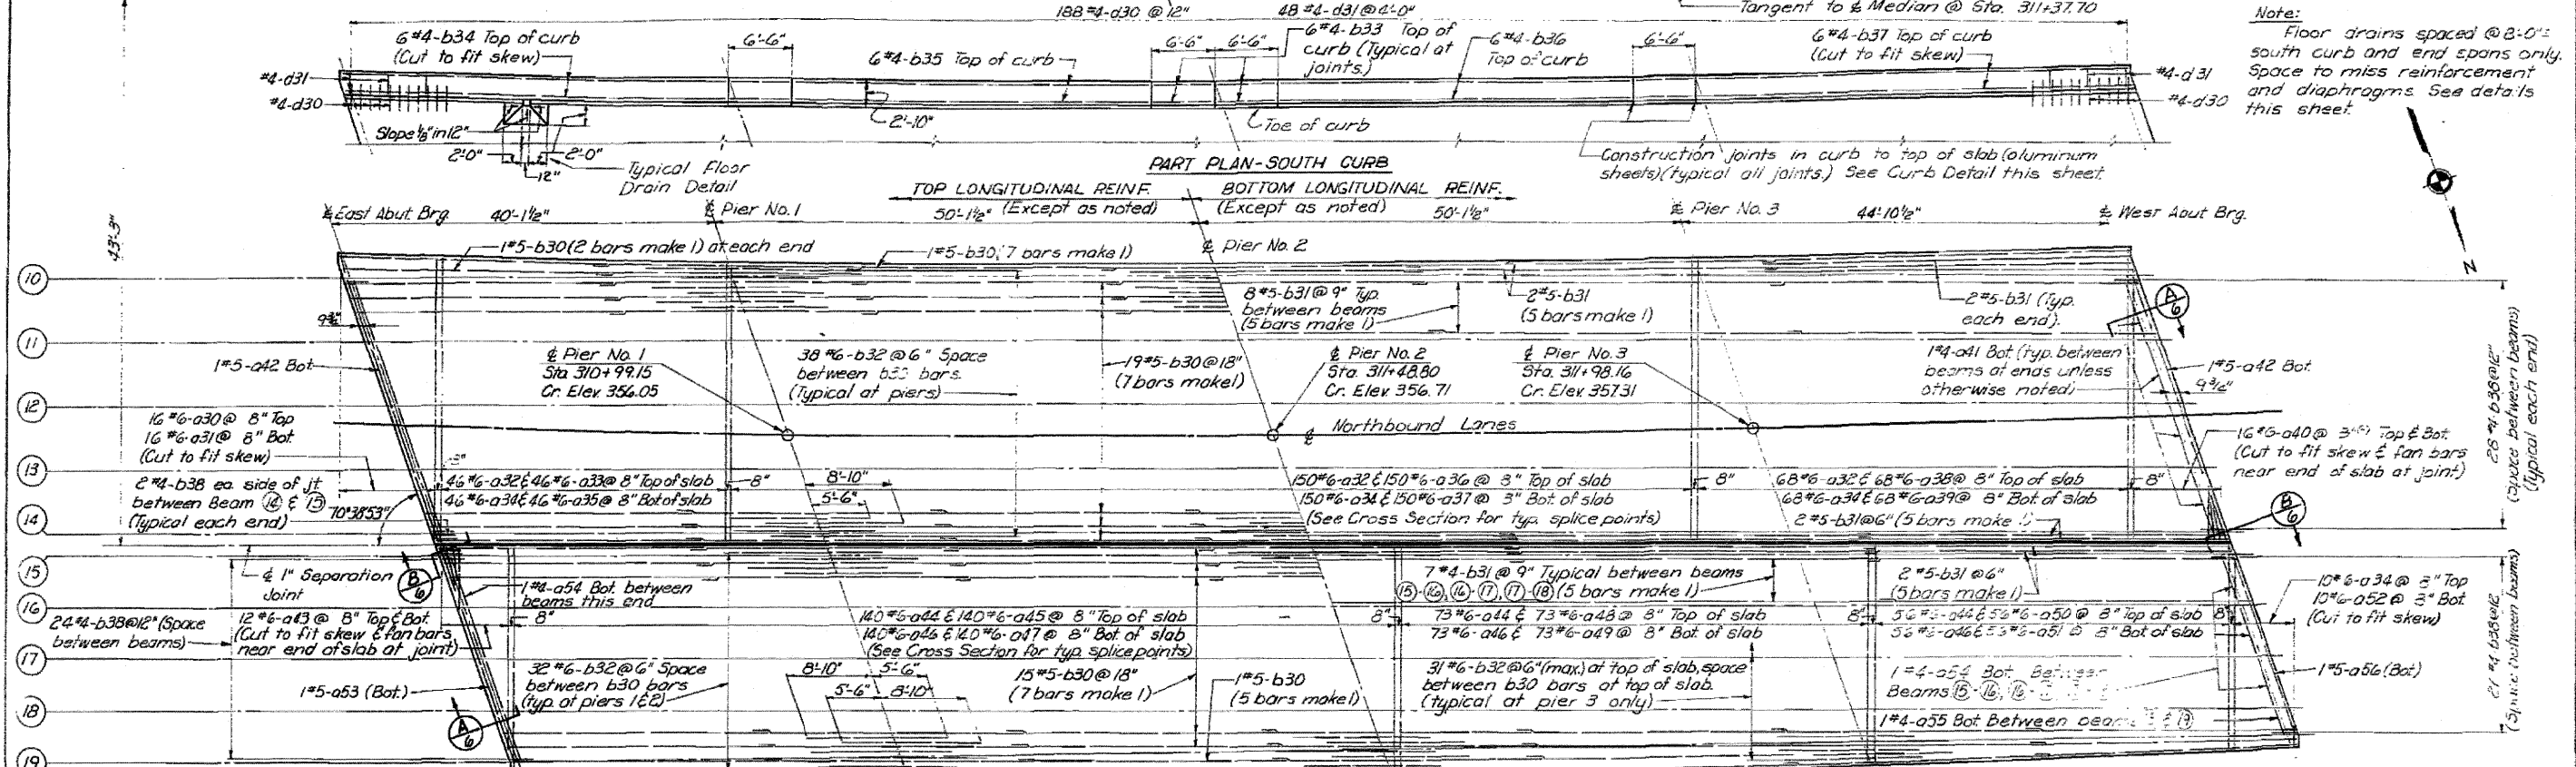 188 #4-d30 @ 12"
48 #4-d31 @ 4'-0"
Tangent to ℄ Median @ Sta. 311+37.70
Note:
Floor drains spaced @ 8'-0"±
south curb and end spans only.
Space to miss reinforcement
and diaphragms. See details
this sheet.
6 #4-b34 Top of curb
(Cut to fit skew)
6'-6"
6 #4-b35 Top of curb
6'-6"
6'-6"
6 #4-b33 Top of
curb (Typical at
joints.)
6 #4-b36
Top of curb
6'-6"
6 #4-b37 Top of curb
(Cut to fit skew)
#4-d31
#4-d30
#4-d31
#4-d30
Slope ⅛" in 12"
2'-0"
2'-0"
12"
Typical Floor
Drain Detail
2'-10"
Toe of curb
PART PLAN-SOUTH CURB
Construction joints in curb to top of slab (aluminum
sheets)(typical all joints.) See Curb Detail this sheet.
TOP LONGITUDINAL REINF.
(Except as noted)
BOTTOM LONGITUDINAL REINF.
(Except as noted)
43'-3"
℄ East Abut Brg.
40'-1½"
℄ Pier No. 1
50'-1½"
50'-1½"
℄ Pier No. 3
44'-10½"
℄ West Abut Brg.
N
1 #5-b30 (2 bars make 1) at each end
1 #5-b30 (7 bars make 1)
℄ Pier No. 2
10
11
12
13
14
15
16
17
18
19
8 #5-b31 @ 9" Typ.
between beams
(5 bars make 1)
2 #5-b31
(5 bars make 1)
2 #5-b31 (Typ.
each end).
A
6
1 #5-a42 Bot.
℄ Pier No. 1
Sta. 310+99.15
Gr. Elev. 356.05
38 #6-b32 @ 6" Space
between b30 bars.
(Typical at piers)
19 #5-b30 @ 18"
(7 bars make 1)
℄ Pier No. 2
Sta. 311+48.80
Gr. Elev. 356.71
℄ Pier No. 3
Sta. 311+98.16
Gr. Elev. 357.31
1 #4-a41 Bot. (typ. between
beams at ends unless
otherwise noted)
1 #5-a42 Bot.
9¾"
28 #4-b38 @ 12"
(Space between beams)
(Typical each end)
16 #6-a30 @ 8" Top
16 #6-a31 @ 8" Bot.
(Cut to fit skew)
℄ Northbound Lanes
16 #6-a40 @ Top & Bot.
(Cut to fit skew & fan bars
near end of slab at joint)
2 #4-b38 ea. side of jt.
between Beam 14 & 15
(Typical each end)
70°38'53"
46 #6-a32 & 46 #6-a33 @ 8" Top of slab
46 #6-a34 & 46 #6-a35 @ 8" Bot of slab
8"
8'-10"
5'-6"
150 #6-a32 & 150 #6-a36 @ 8" Top of slab
150 #6-a34 & 150 #6-a37 @ 8" Bot. of slab
(See Cross Section for typ. splice points)
8"
68 #6-a32 & 68 #6-a38 @ 8" Top of slab
68 #6-a34 & 68 #6-a39 @ 8" Bot. of slab
8"
2 #5-b31 @ 6" (5 bars make 1)
B
6
℄ 1" Separation
Joint
B
6
1 #4-a54 Bot. between
beams this end
7 #4-b31 @ 9" Typical between beams
15-16, 16-17, 17-18 (5 bars make 1)
2 #5-b31 @ 6"
(5 bars make 1)
10 #6-a34 @ 8" Top
10 #6-a52 @ 8" Bot.
(Cut to fit skew)
24 #4-b38 @ 12" (Space
between beams)
12 #6-a43 @ 8" Top & Bot.
(Cut to fit skew & fan bars
near end of slab at joint)
8"
140 #6-a44 & 140 #6-a45 @ 8" Top of slab
140 #6-a46 & 140 #6-a47 @ 8" Bot. of slab
(See Cross Section for typ. splice points)
8"
73 #6-a44 & 73 #6-a48 @ 8" Top of slab
73 #6-a46 & 73 #6-a49 @ 8" Bot. of slab
8"
56 #6-a44 & 56 #6-a50 @ 8" Top of slab
56 #6-a46 & 56 #6-a51 @ 8" Bot. of slab
8"
1 #5-a53 (Bot.)
32 #6-b32 @ 6" Space
between b30 bars
(typ. at piers 1 & 2)
8'-10"
5'-6"
5'-6"
8'-10"
15 #5-b30 @ 18"
(7 bars make 1)
1 #5-b30
(5 bars make 1)
31 #6-b32 @ 6" (max.) at top of slab, space
between b30 bars at top of slab.
(typical at pier 3 only)
1 #4-a54 Bot. Between
Beams 15-16, 16-
1 #4-a55 Bot. Between beams
1 #5-a56 (Bot.)
21 #4-b38 @ 12"
(Space between beams)
A
6